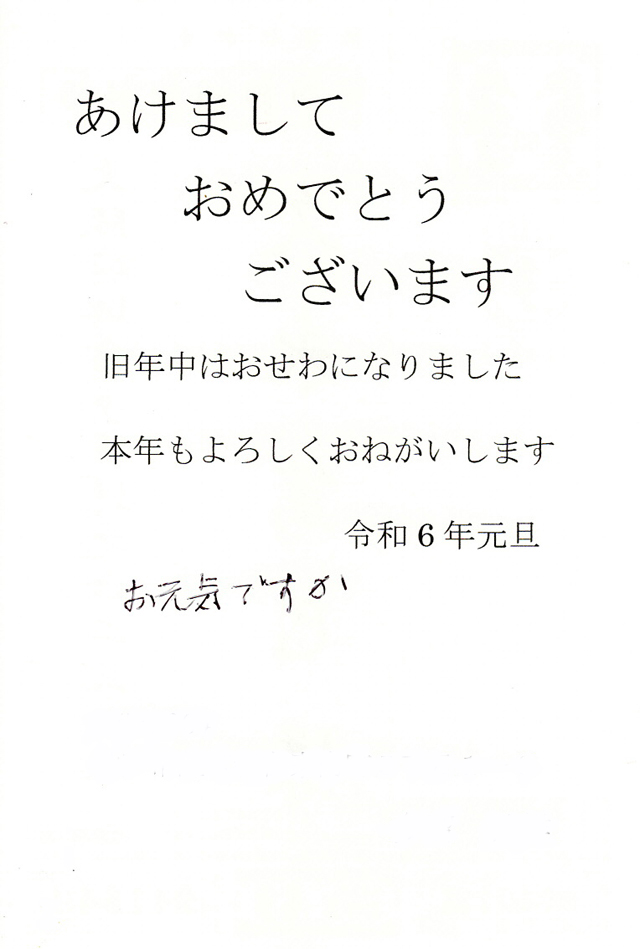 あけまして
おめでとう
ございます
旧年中はおせわになりました
本年もよろしくおねがいします
令和６年元旦
お元気ですか